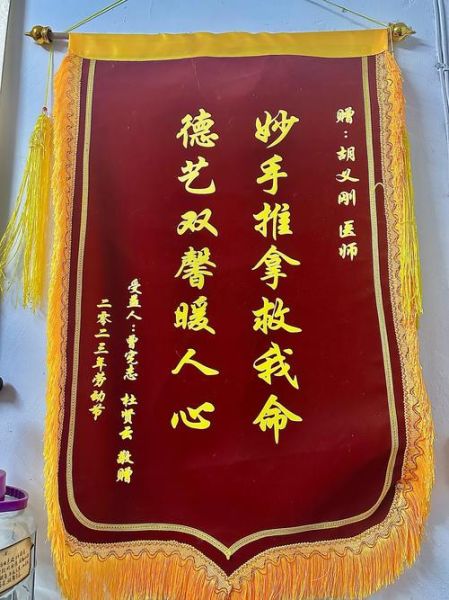 赠：胡义刚 医师
妙手推拿救我命
德艺双馨暖人心
受益人：曹宪志 杜贤云 敬赠
二零二三年劳动节